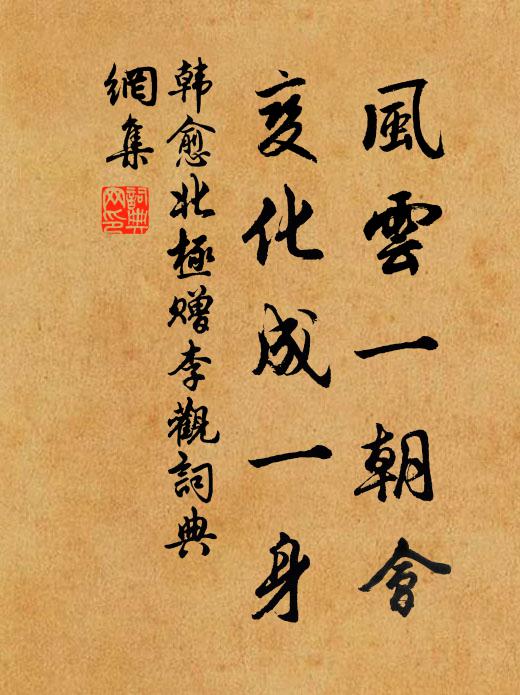 風雲一朝會
变化成一身
韩愈北極赠李觀詞典
網集
詞典
网印